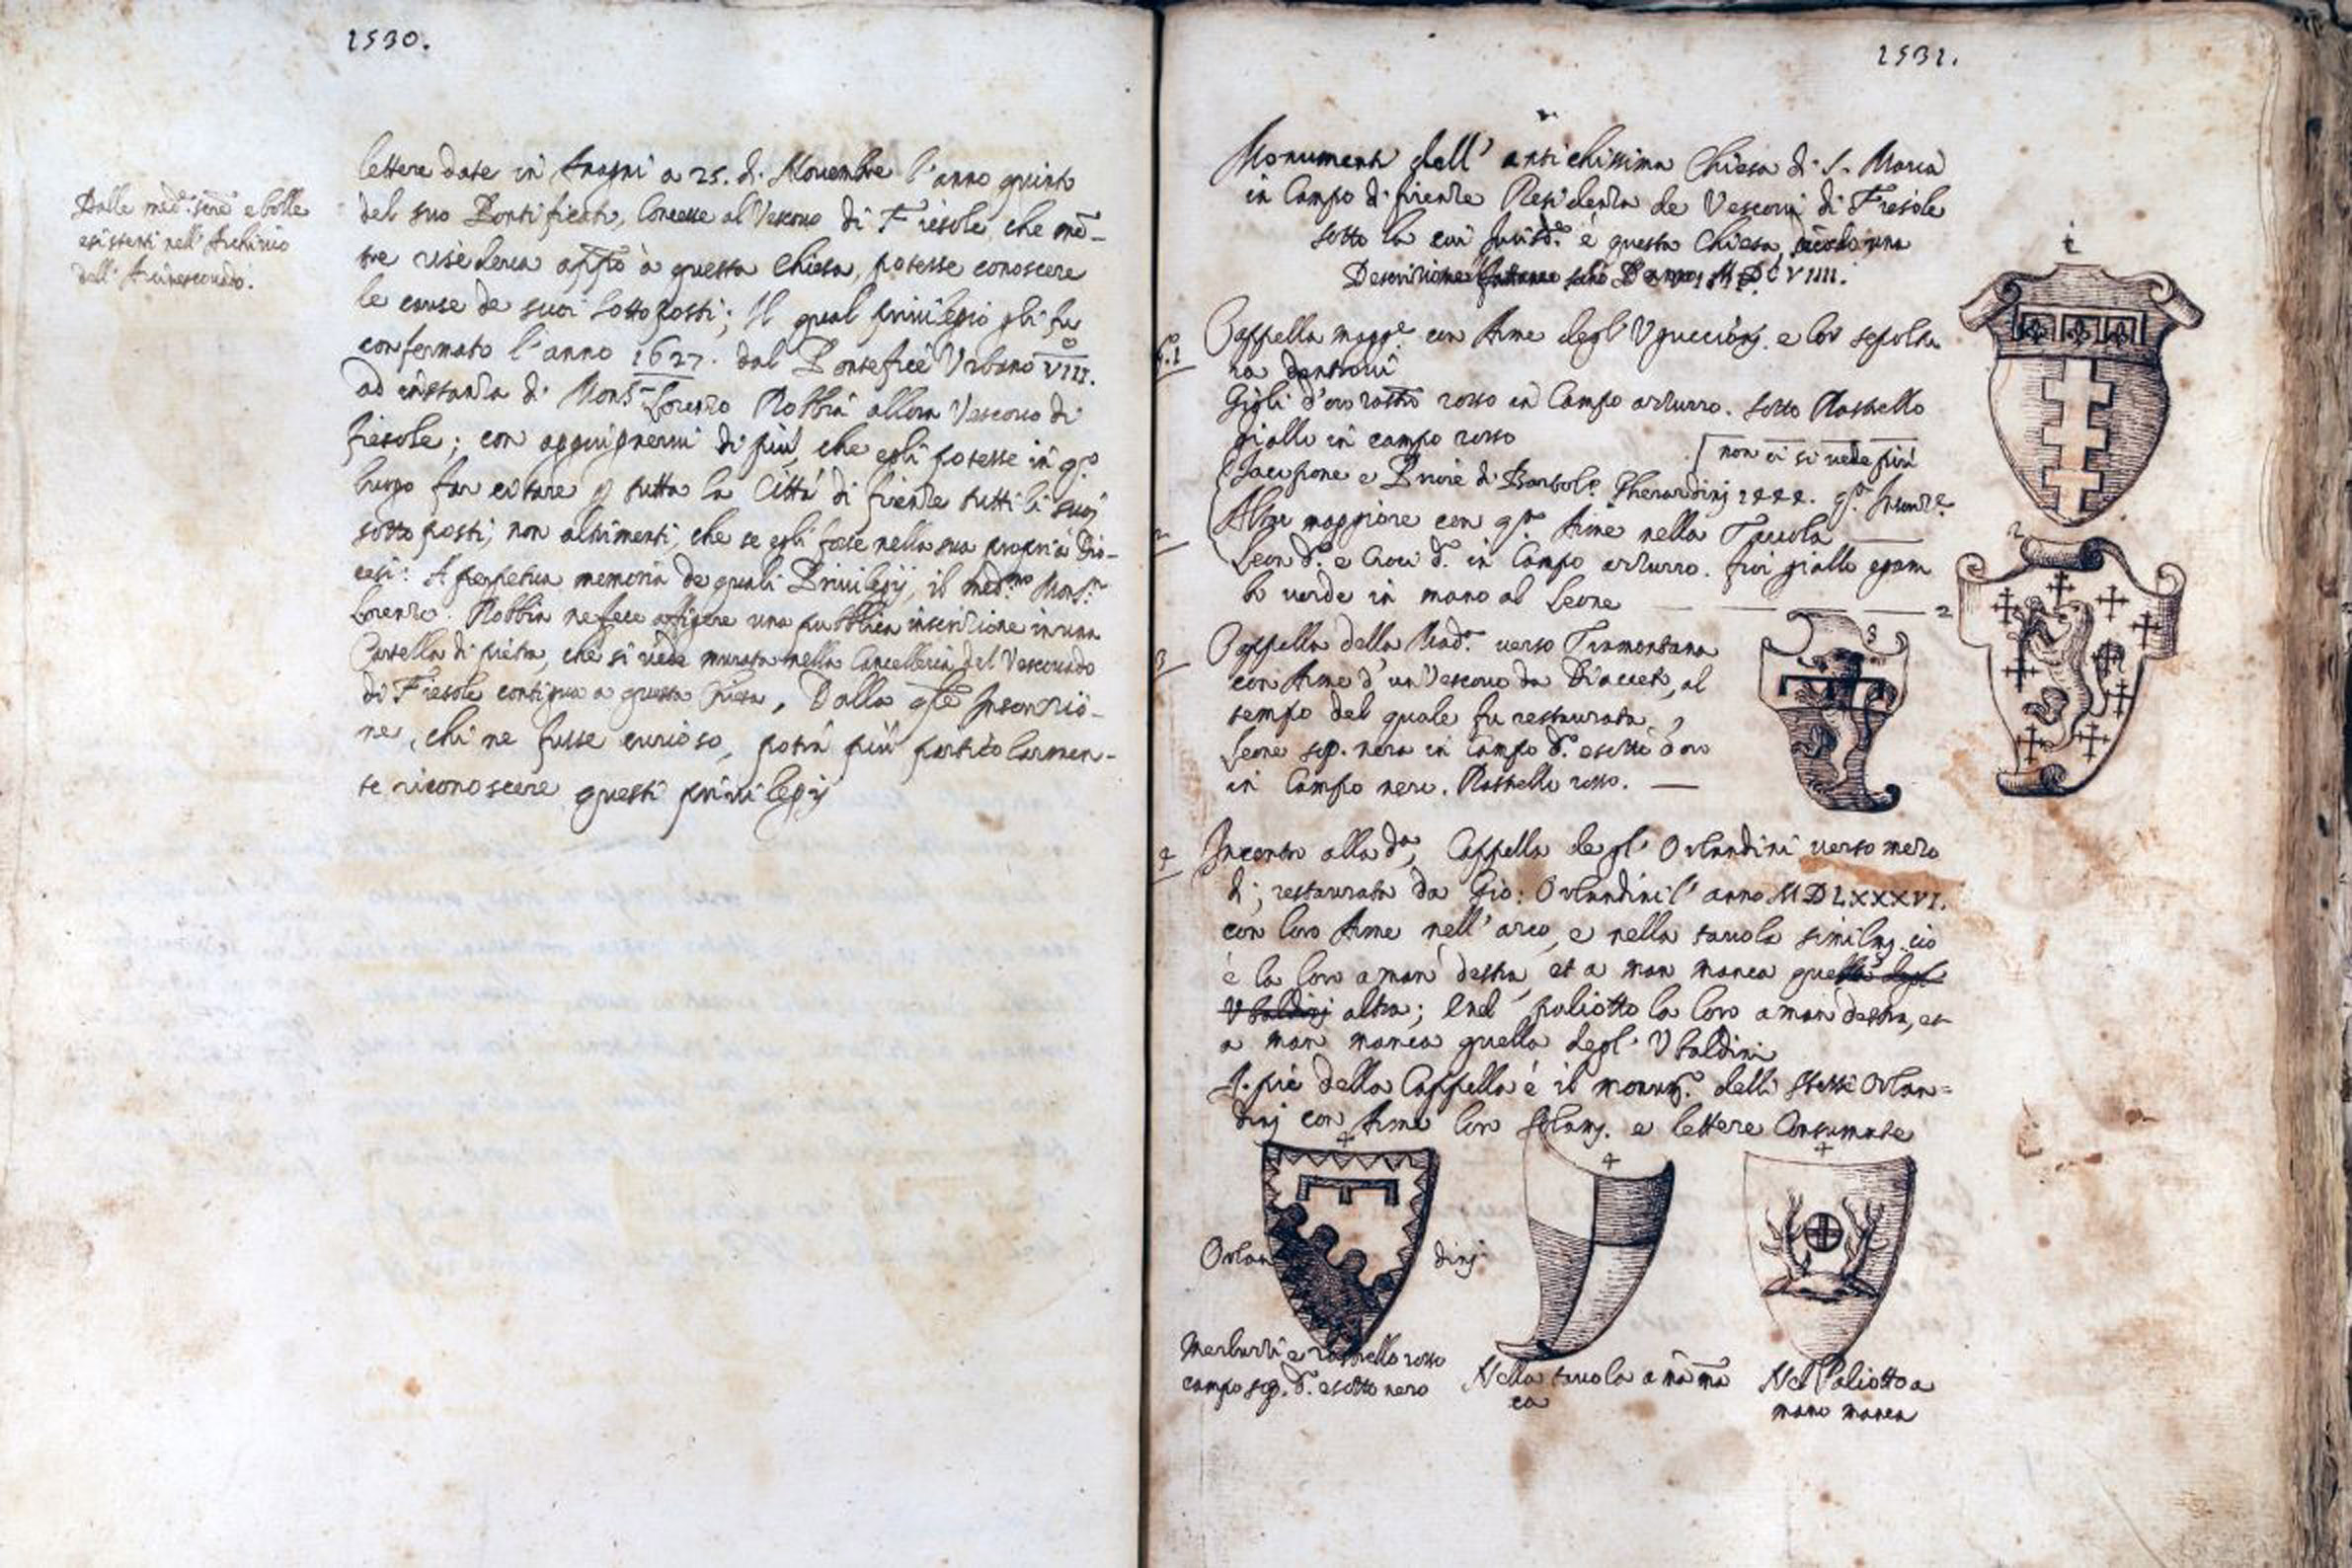 1530.
Dalle med.e scrê e bolle
esistenti nell' Archivio
dell' Arcivescovado.
lettere date in Anagni a 25. di Novembre l'anno quinto
del suo Pontificato, Concesse al Vescovo di Fiesole, che mẽ-
tre risederca appõ à questa Chiesa, potesse conoscere
le cause de suoi sottoposti; Il qual privilegio gli fu
confermato l'anno 1627. dal Pontefice Urbano VIII.
ad instanza di Mons.r Lorenzo Robbia allora Vescovo di
fiesole; con aggiugnervi di più, che egli potesse in q.o
luogo far citare p tutta la Città di firenze tutti li suoi
sotto posti, non altrimenti, che se egli fosse nella sua propria Dio-
cesi: A perpetua memoria de quali Privilegij, il med.mo Mons.r
Lorenzo Robbia ne fece affigere una pubblica inscrizione in una
Cartella di pietra, che si vede murata nella Cancelleria del Vescovado
di Fiesole contigua a questa Chiesa, Dalla qle Inscrizio-
ne, chi ne fusse curioso, potrà più particolarmen-
te riconoscere questi privilegij
1531.
Monumenti dell' antichissima Chiesa di S. Maria
in Campo di firenze Residenza de Vescovi di Fiesole
sotto la cui Jurisd.e è questa Chiesa, secondo una
Descrizione fattane sino l'anno MDCVIIII.
n.o 1
Cappella magg.e con Arme degl' Uguccionj. e lor sepoltu
ra dentrovi
Gigli d'oro rastro rosso in Campo azzurro. sotto Rastrello
giallo in campo rosso
non ci si vede più
Jacopone e Priore di Bartolo Gherardinj 1444. q.a Inscriz.e
2
Altar maggiore con q.a Arme nella Tavola
Leon d.o e Croci d. in Campo azzurro. fior giallo e gam
bo verde in mano al Leone 2
3
Cappella della Mad.a verso Tramontana
con Arme d'un Vescovo da Diacceto, al
tempo del quale fu restaurata,
Leone sop. nero in Campo d. e sotto d'oro
in Campo nero. Rastrello rosso.
4
Incontro alla d.a, Cappella degl' Orlandini verso mezo
di; restaurata da Gio: Orlandini l'anno MDLXXXVI.
con loro Arme nell' arco, e nella tavola similm. cio
è la loro a man destra, et a man manca quella degl
Ubaldinj altra; E nel paliotto la loro a man destra, et
a man manca quella degl' Ubaldini
A piè della Cappella è il monum. delli stessi Orlan=
dinj con Arme loro solamj. e lettere Consumate
1
2
3
4
4
4
Orlan dinj
Merli e rastrello rosso
campo sop. d. e sotto nero
Nella tavola a mã mã
ca
Nel Paliotto a
mano manca